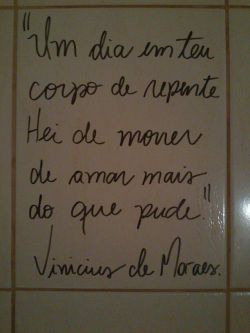 "Um dia em teu
corpo de repente
Hei de morrer
de amar mais
do que pude."
Vinicius de Moraes.